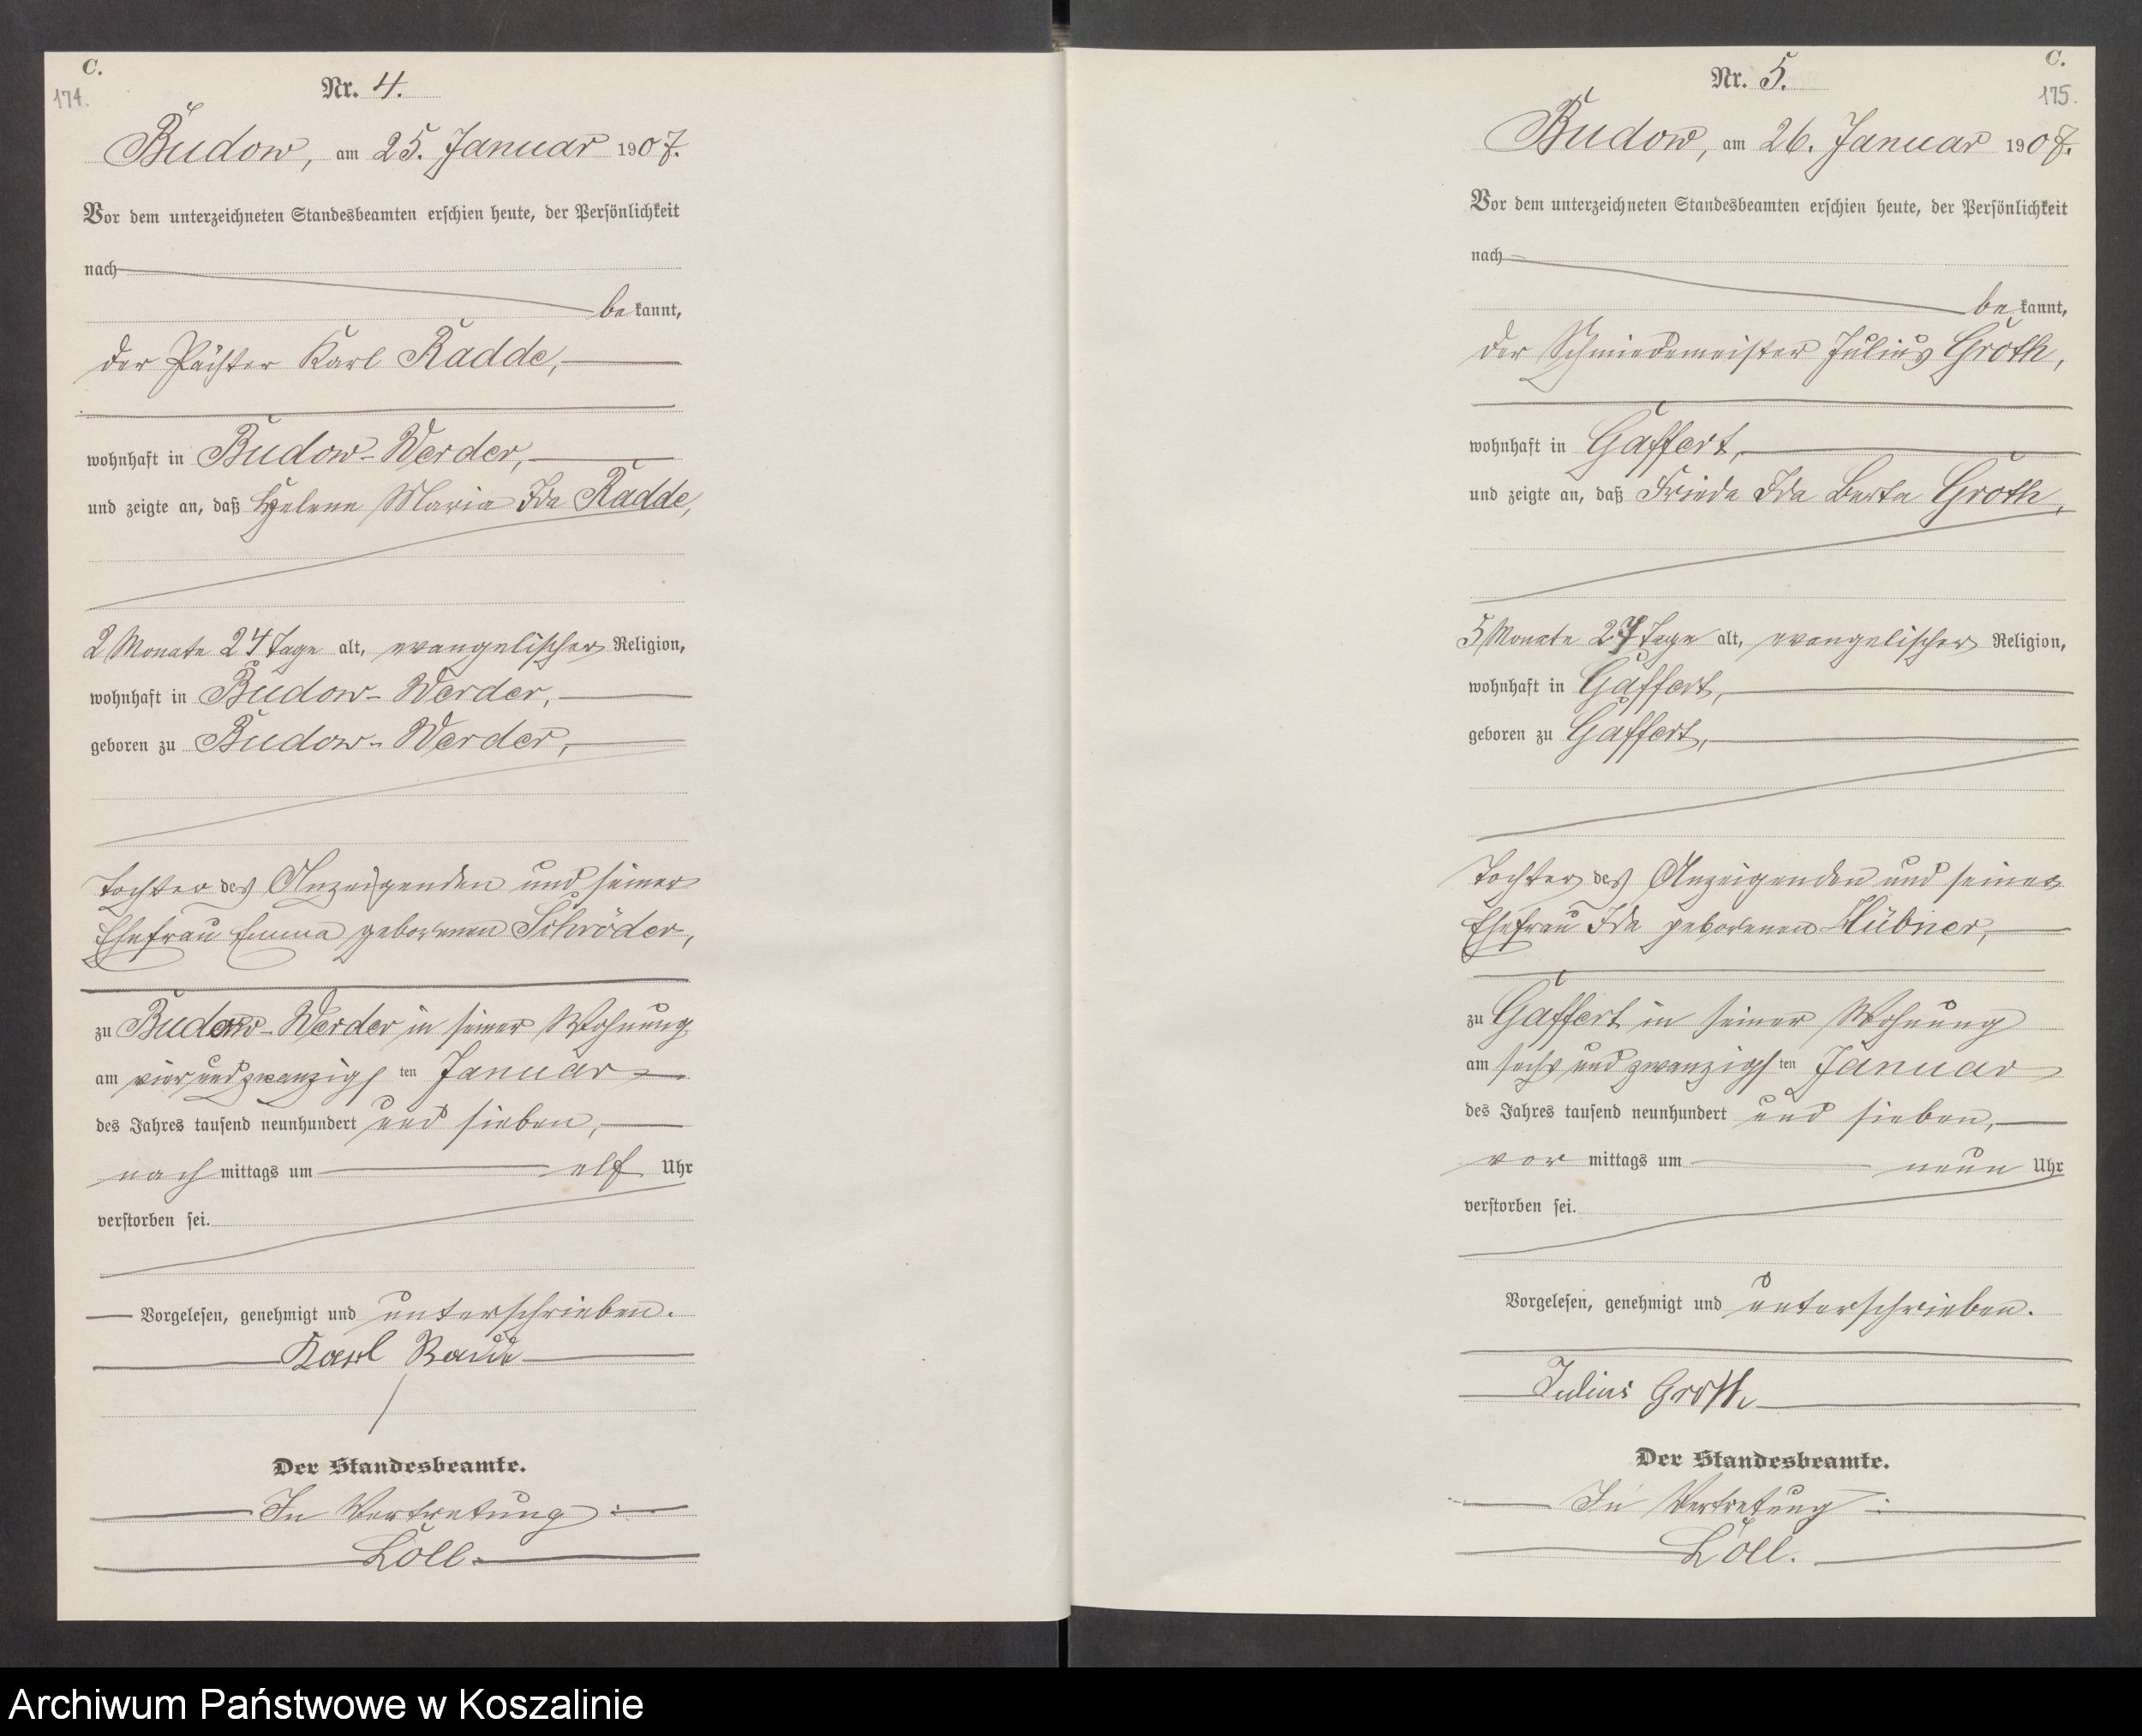 C.
174.
Nr. 4.
Budow, am 25. Januar 1907.
Vor dem unterzeichneten Standesbeamten erschien heute, der Persönlichkeit
nach
be kannt,
der Pächter Karl Radde,
wohnhaft in Budow-Werder,
und zeigte an, daß Helene Maria Ida Radde,
2 Monate 24 Tage alt, evangelischer Religion,
wohnhaft in Budow-Werder,
geboren zu Budow-Werder,
Tochter des Anzeigenden und seiner
Ehefrau Emma geborenen Schröder,
zu Budow-Werder in seiner Wohnung
am vierundzwanzigsten Januar
des Jahres tausend neunhundert und sieben,
nach mittags um elf Uhr
verstorben sei.
Vorgelesen, genehmigt und unterschrieben.
Karl Radde
Der Standesbeamte.
In Vertretung:
Löll.
C.
175.
Nr. 5.
Budow, am 26. Januar 1907.
Vor dem unterzeichneten Standesbeamten erschien heute, der Persönlichkeit
nach
be kannt,
der Schmiedemeister Julius Groth,
wohnhaft in Gaffert,
und zeigte an, daß Frieda Ida Berta Groth,
5 Monate Tage alt, evangelischer Religion,
wohnhaft in Gaffert,
geboren zu Gaffert,
Tochter des Anzeigenden und seiner
Ehefrau Ida geborenen Hübner,
zu Gaffert in seiner Wohnung
am sechsundzwanzigsten Januar
des Jahres tausend neunhundert und sieben,
vor mittags um neun Uhr
verstorben sei.
Vorgelesen, genehmigt und unterschrieben.
Julius Groth
Der Standesbeamte.
In Vertretung:
Löll.
Archiwum Państwowe w Koszalinie